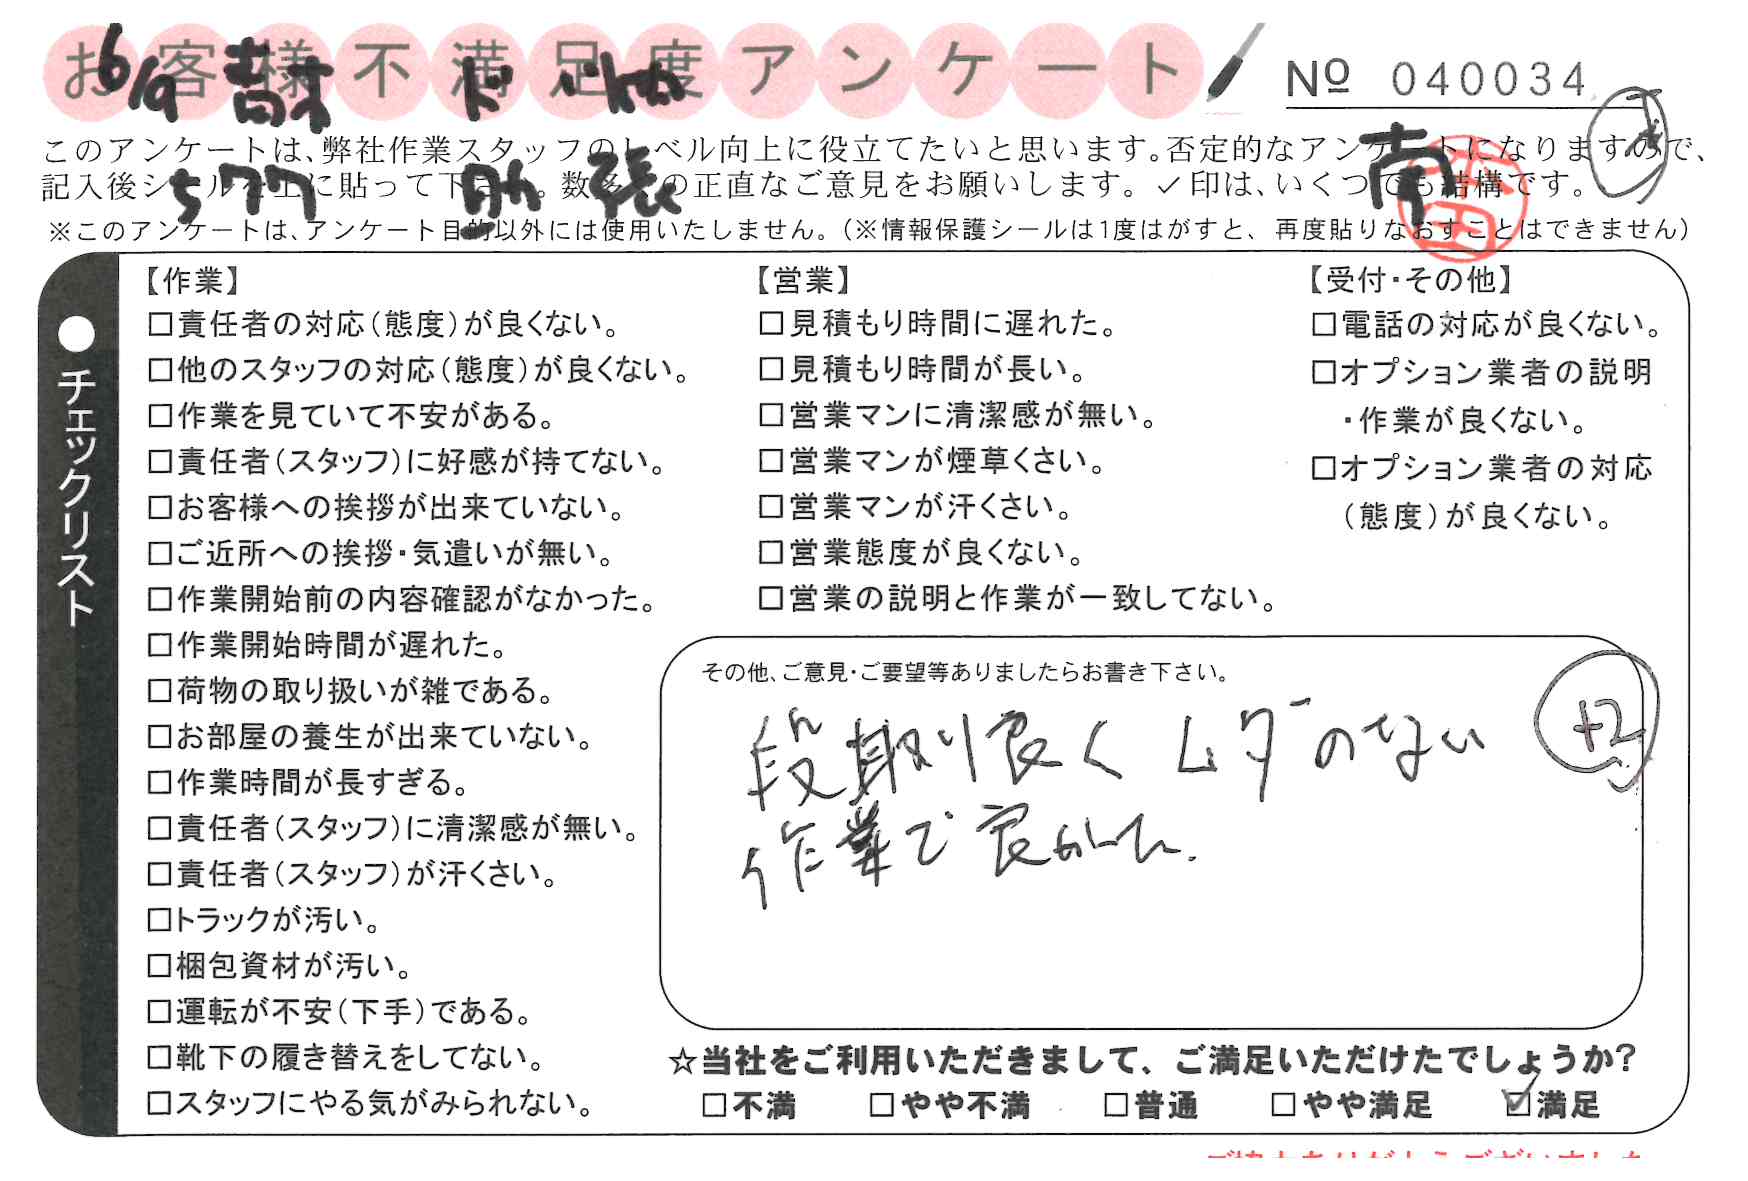 お客様不満足度アンケート
№ 040034
6/9
このアンケートは、弊社作業スタッフのレベル向上に役立てたいと思います。否定的なアンケートになりますので、
記入後シールを上に貼って下さい。数多くの正直なご意見をお願いします。✓印は、いくつでも結構です。
577 助 張 南
※このアンケートは、アンケート目的以外には使用いたしません。(※情報保護シールは1度はがすと、再度貼りなおすことはできません)
●チェックリスト
【作業】
□責任者の対応(態度)が良くない。
□他のスタッフの対応(態度)が良くない。
□作業を見ていて不安がある。
□責任者(スタッフ)に好感が持てない。
□お客様への挨拶が出来ていない。
□ご近所への挨拶・気遣いが無い。
□作業開始前の内容確認がなかった。
□作業開始時間が遅れた。
□荷物の取り扱いが雑である。
□お部屋の養生が出来ていない。
□作業時間が長すぎる。
□責任者(スタッフ)に清潔感が無い。
□責任者(スタッフ)が汗くさい。
□トラックが汚い。
□梱包資材が汚い。
□運転が不安(下手)である。
□靴下の履き替えをしてない。
□スタッフにやる気がみられない。
【営業】
□見積もり時間に遅れた。
□見積もり時間が長い。
□営業マンに清潔感が無い。
□営業マンが煙草くさい。
□営業マンが汗くさい。
□営業態度が良くない。
□営業の説明と作業が一致してない。
【受付・その他】
□電話の対応が良くない。
□オプション業者の説明
・作業が良くない。
□オプション業者の対応
(態度)が良くない。
その他、ご意見・ご要望等ありましたらお書き下さい。
段取り良く ムダのない
作業で良かった.
+2
☆当社をご利用いただきまして、ご満足いただけたでしょうか?
□不満 □やや不満 □普通 □やや満足 ☑満足
ご協力ありがとうございました